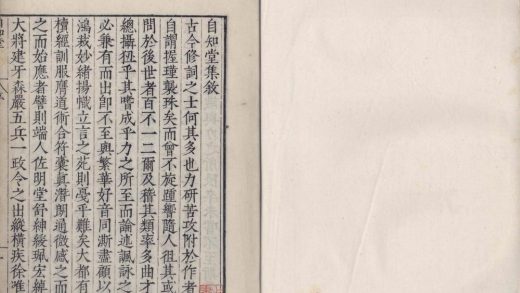 自知堂集敘
古今修詞之士何其多也力研苦攻附於作者
自謂握瑾襲珠矣而曾不旋踵響隨人徂其或
問於後世者百不一二爾及稽其類率多曲才
總攝狃乎其嗜成乎力之所至而論述諷詠之
必兼有而出卽不至與繁華好音同澌盡顧以
鴻裁妙緒揚幟立言之苑則戞乎難矣大都有
積經訓服膺道術合符囊眞潛朗通微感之而
之而始應者譬則端人佐明堂舒紳緩珮宏綍
大將建牙森嚴五兵一致令之出縱橫疾徐惟